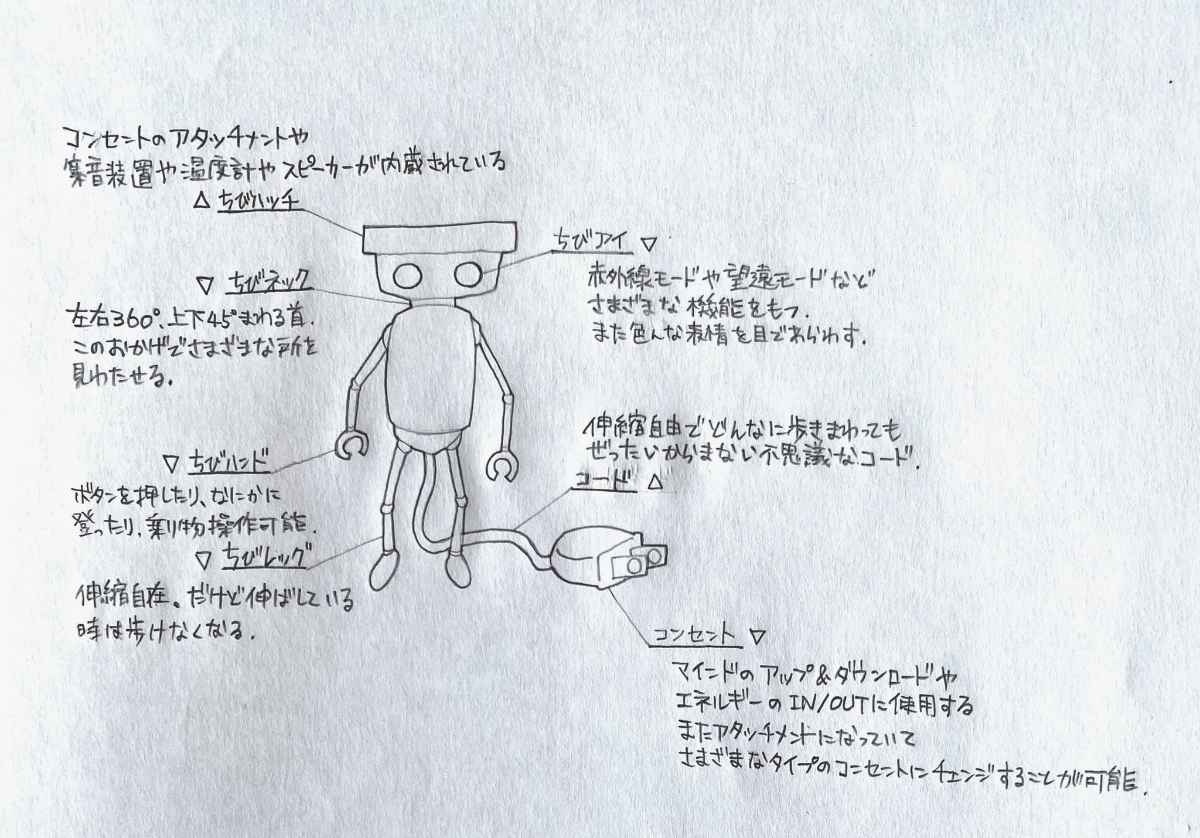 コンセントのアタッチメントや
集音装置や温度計やスピーカーが内蔵されている
△ ちびハッチ
ちびアイ ▽
赤外線モードや望遠モードなど
さまざまな機能をもつ.
また色んな表情を目であらわす.
▽ ちびネック
左右360°、上下45°まわる首.
このおかげでさまざまな所を
見わたせる.
伸縮自由でどんなに歩きまわっても
ぜったいからまない不思議なコード.
コード △
▽ ちびハンド
ボタンを押したり、なにかに
登ったり、乗り物操作可能.
▽ ちびレッグ
伸縮自在。だけど伸ばしている
時は歩けなくなる.
コンセント ▽
マインドのアップ&ダウンロードや
エネルギーのIN/OUTに使用する
またアタッチメントになっていて
さまざまなタイプのコンセントにチェンジすることが可能.